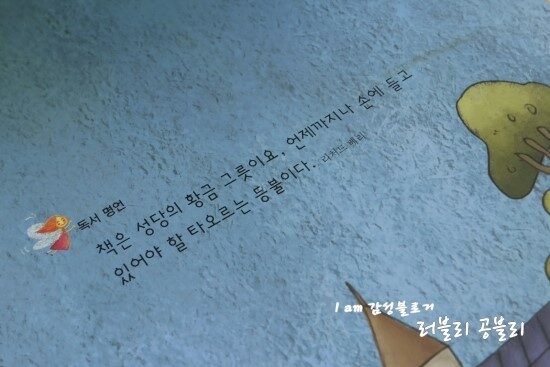 독서 명언
책은 성당의 황금 그릇이요, 언제까지나 손에 들고
있어야 할 타오르는 등불이다. 리처드 베리
I am 감성블로거
러블리 공블리